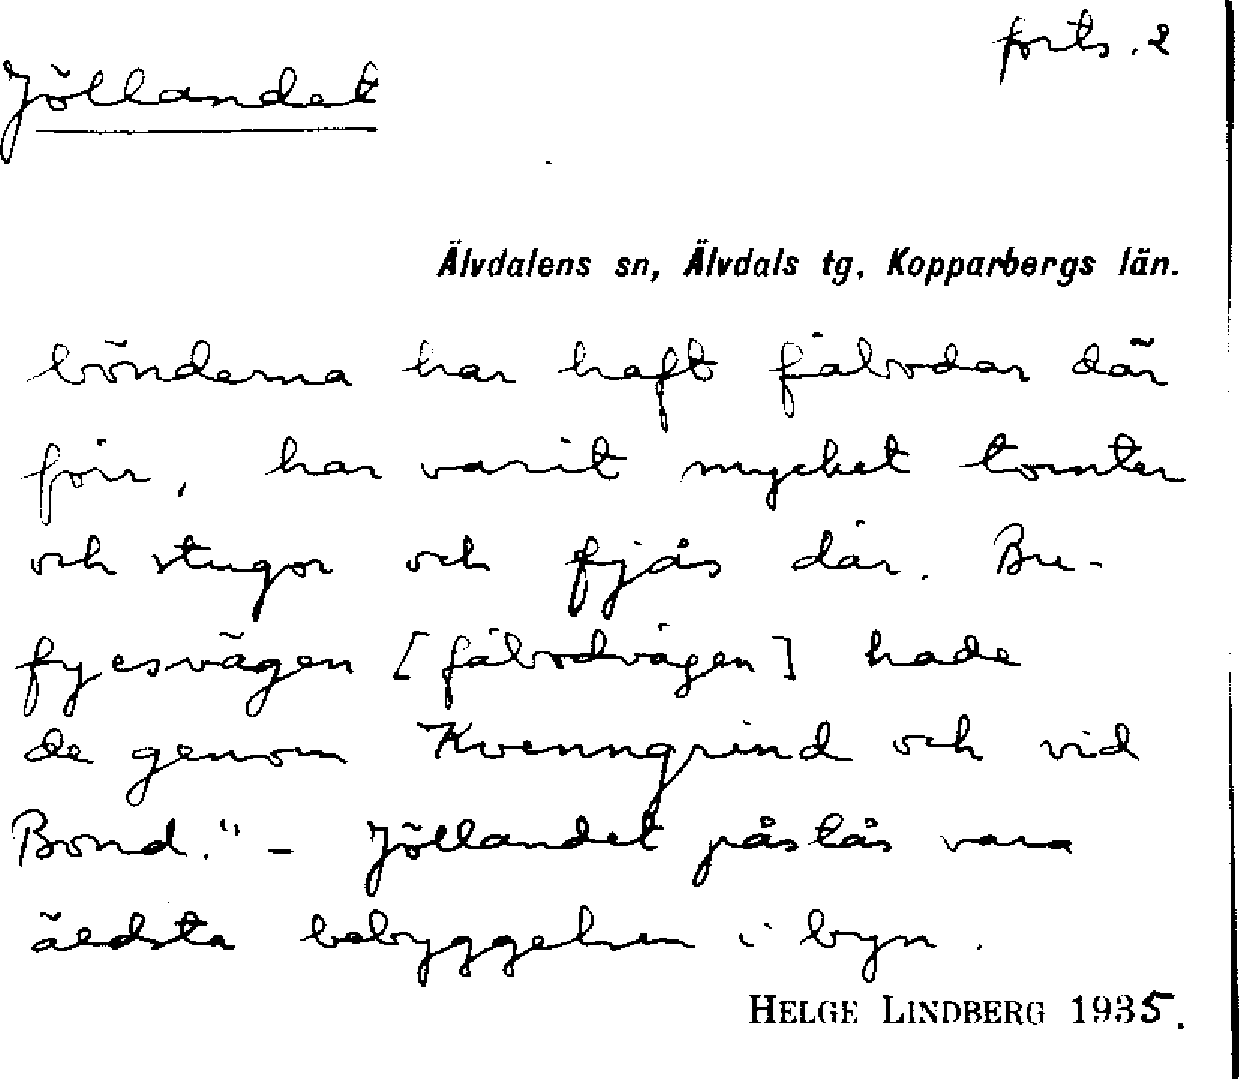 forts. 2
Jöllandet
Älvdalens sn, Älvdals tg, Kopparbergs län.
bönderna har haft fäbodar där
förr, har varit mycket tomter
och stugor och fjås där. Bu-
fyesvägen [fäbodvägen] hade
de genom Kvenngrind och vid
Bond." - Jöllandet påstås vara
äldsta bebyggelsen i byn.
HELGE LINDBERG 1935.